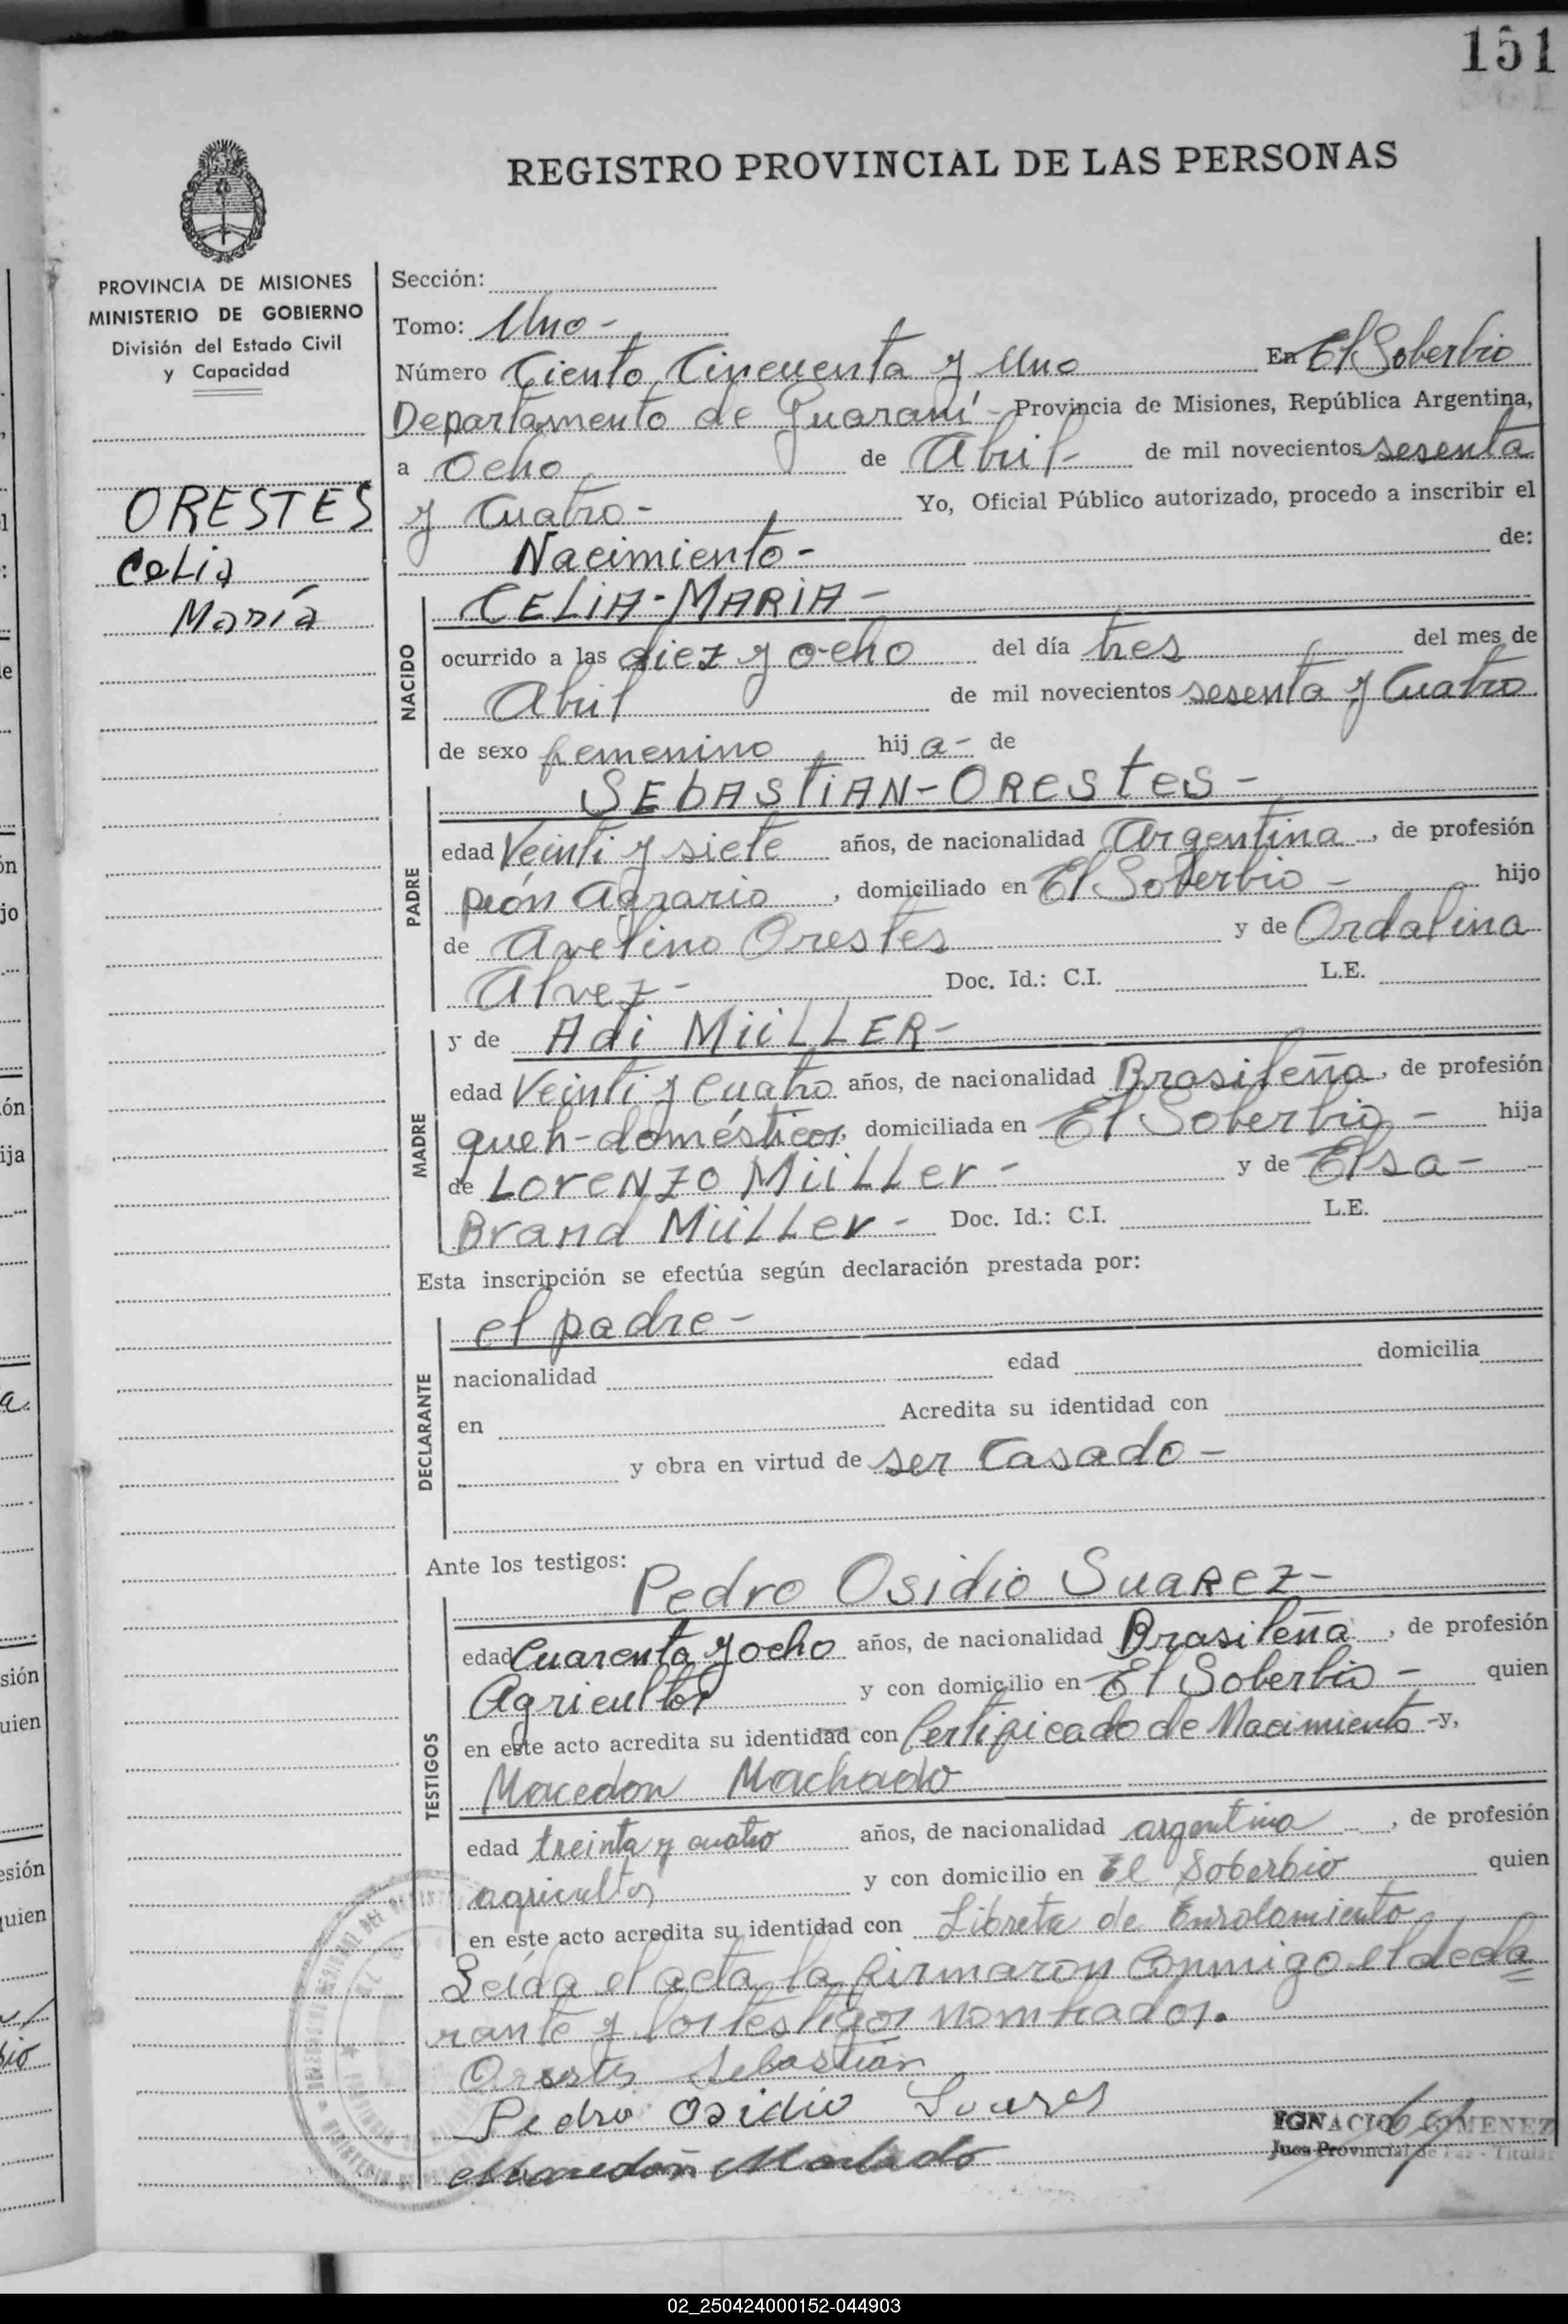 151
REGISTRO PROVINCIAL DE LAS PERSONAS
PROVINCIA DE MISIONES
MINISTERIO DE GOBIERNO
División del Estado Civil
y Capacidad
ORESTES
Celia
María
Sección:
Tomo: Uno -
Número Ciento Cincuenta y Uno En El Soberbio
Departamento de Guaraní - Provincia de Misiones, República Argentina,
a Ocho de Abril - de mil novecientos sesenta
y Cuatro - Yo, Oficial Público autorizado, procedo a inscribir el
Nacimiento - de:
NACIDO
CELIA-MARIA -
ocurrido a las diez y ocho del día tres del mes de
Abril de mil novecientos sesenta y Cuatro
de sexo femenino hij a - de
PADRE
SEbAStiAN - OREStes -
edad Veinti y siete años, de nacionalidad Argentina, de profesión
peón Agrario, domiciliado en El Soberbio - hijo
de Avelino Orestes y de Ordalina
Alvez - Doc. Id.: C.I. L.E.
MADRE
y de Adi MüLLER -
edad Veinti y Cuatro años, de nacionalidad Brasileña, de profesión
queh-domésticos, domiciliada en El Soberbio - hija
de LorENZO MüLLer - y de Elsa -
Brand MüLLer - Doc. Id.: C.I. L.E.
Esta inscripción se efectúa según declaración prestada por:
DECLARANTE
el padre -
nacionalidad edad domicilia
en Acredita su identidad con
y obra en virtud de ser Casado -
Ante los testigos:
TESTIGOS
Pedro Osidio SuaREZ -
edad Cuarenta y ocho años, de nacionalidad Brasileña, de profesión
Agricultor y con domicilio en El Soberbio - quien
en este acto acredita su identidad con Certificado de Nacimiento - y,
Macedon Machado
edad treinta y cuatro años, de nacionalidad argentina, de profesión
agricultor y con domicilio en El Soberbio quien
en este acto acredita su identidad con Libreta de Enrolamiento
Leída el acta la firmaron conmigo el decla
rante y los testigos nombrados.
Orestes Sebastián
Pedro Osidio Suares
Macedon Machado
IGNACIO GIMENEZ
Juez Provincial de Paz - Titular
02_250424000152-044903